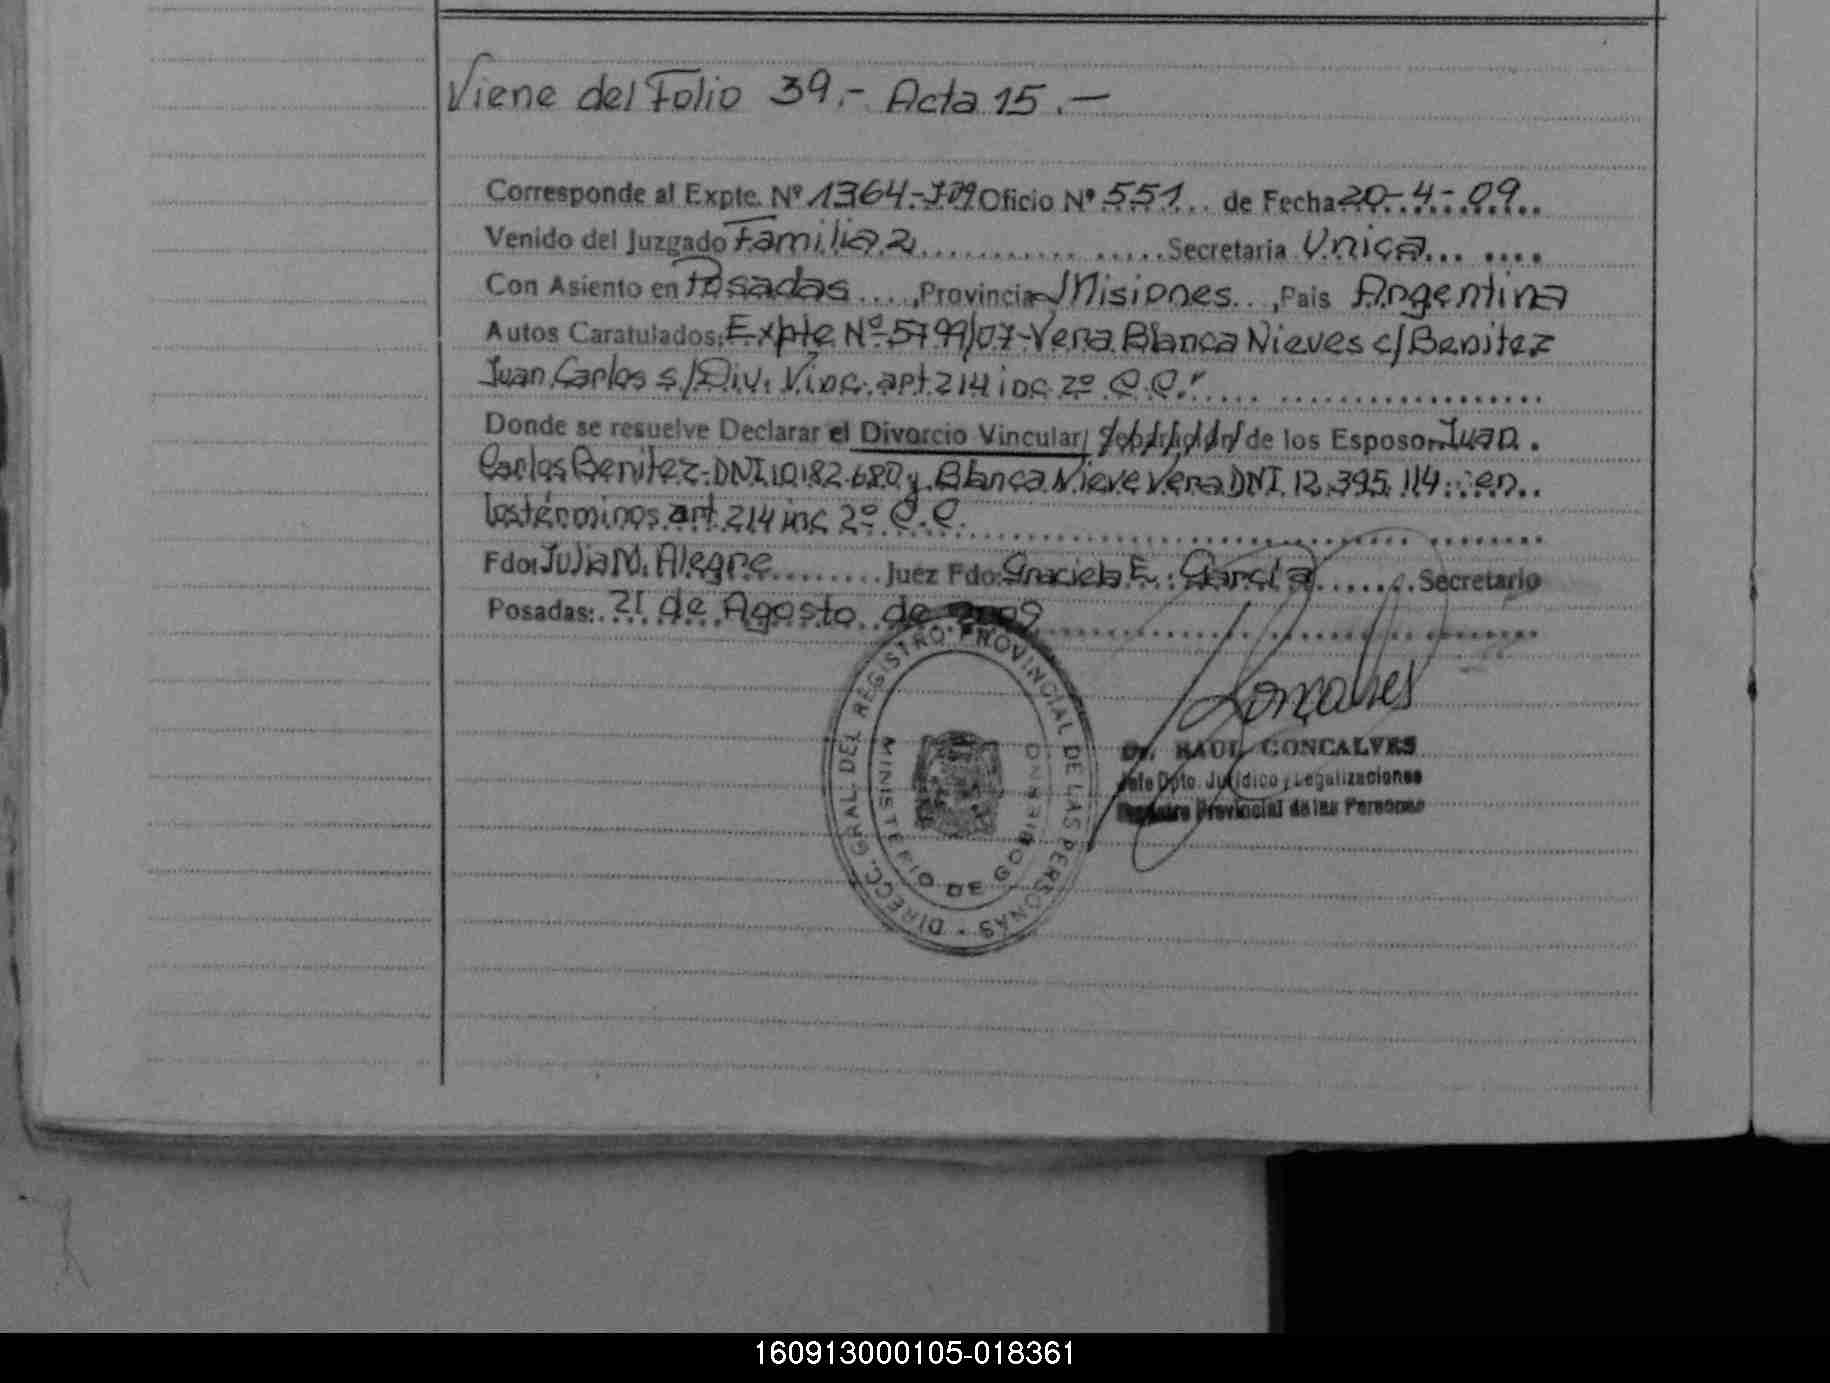 Viene del Folio 39.- Acta 15.-
Corresponde al Expte. Nº 1364-J-09 Oficio Nº 551 de Fecha 20-4-09
Venido del Juzgado Familia 2 Secretaria Unica
Con Asiento en Posadas, Provincia Misiones, Pais Argentina
Autos Caratulados: Expte Nº 5799/07-Vera Blanca Nieves c/Benitez
Juan Carlos s/Div. Vinc. art. 214 inc 2º C.C.
Donde se resuelve Declarar el Divorcio Vincular de los Esposos Juan
Carlos Benitez-DNI 10.182.680 y Blanca Nieve Vera DNI 12.395.114 en
los términos art. 214 inc 2º C.C.
Fdo: Julia M. Alegre Juez Fdo: Graciela E. Garcia Secretario
Posadas: 21 de Agosto de 2009
DIRECC. GRAL. DEL REGISTRO PROVINCIAL DE LAS PERSONAS
MINISTERIO DE GOBIERNO
Goncalves
Dr. RAUL GONCALVES
Jefe Dpto. Jurídico y Legalizaciones
Registro Provincial de las Personas
160913000105-018361